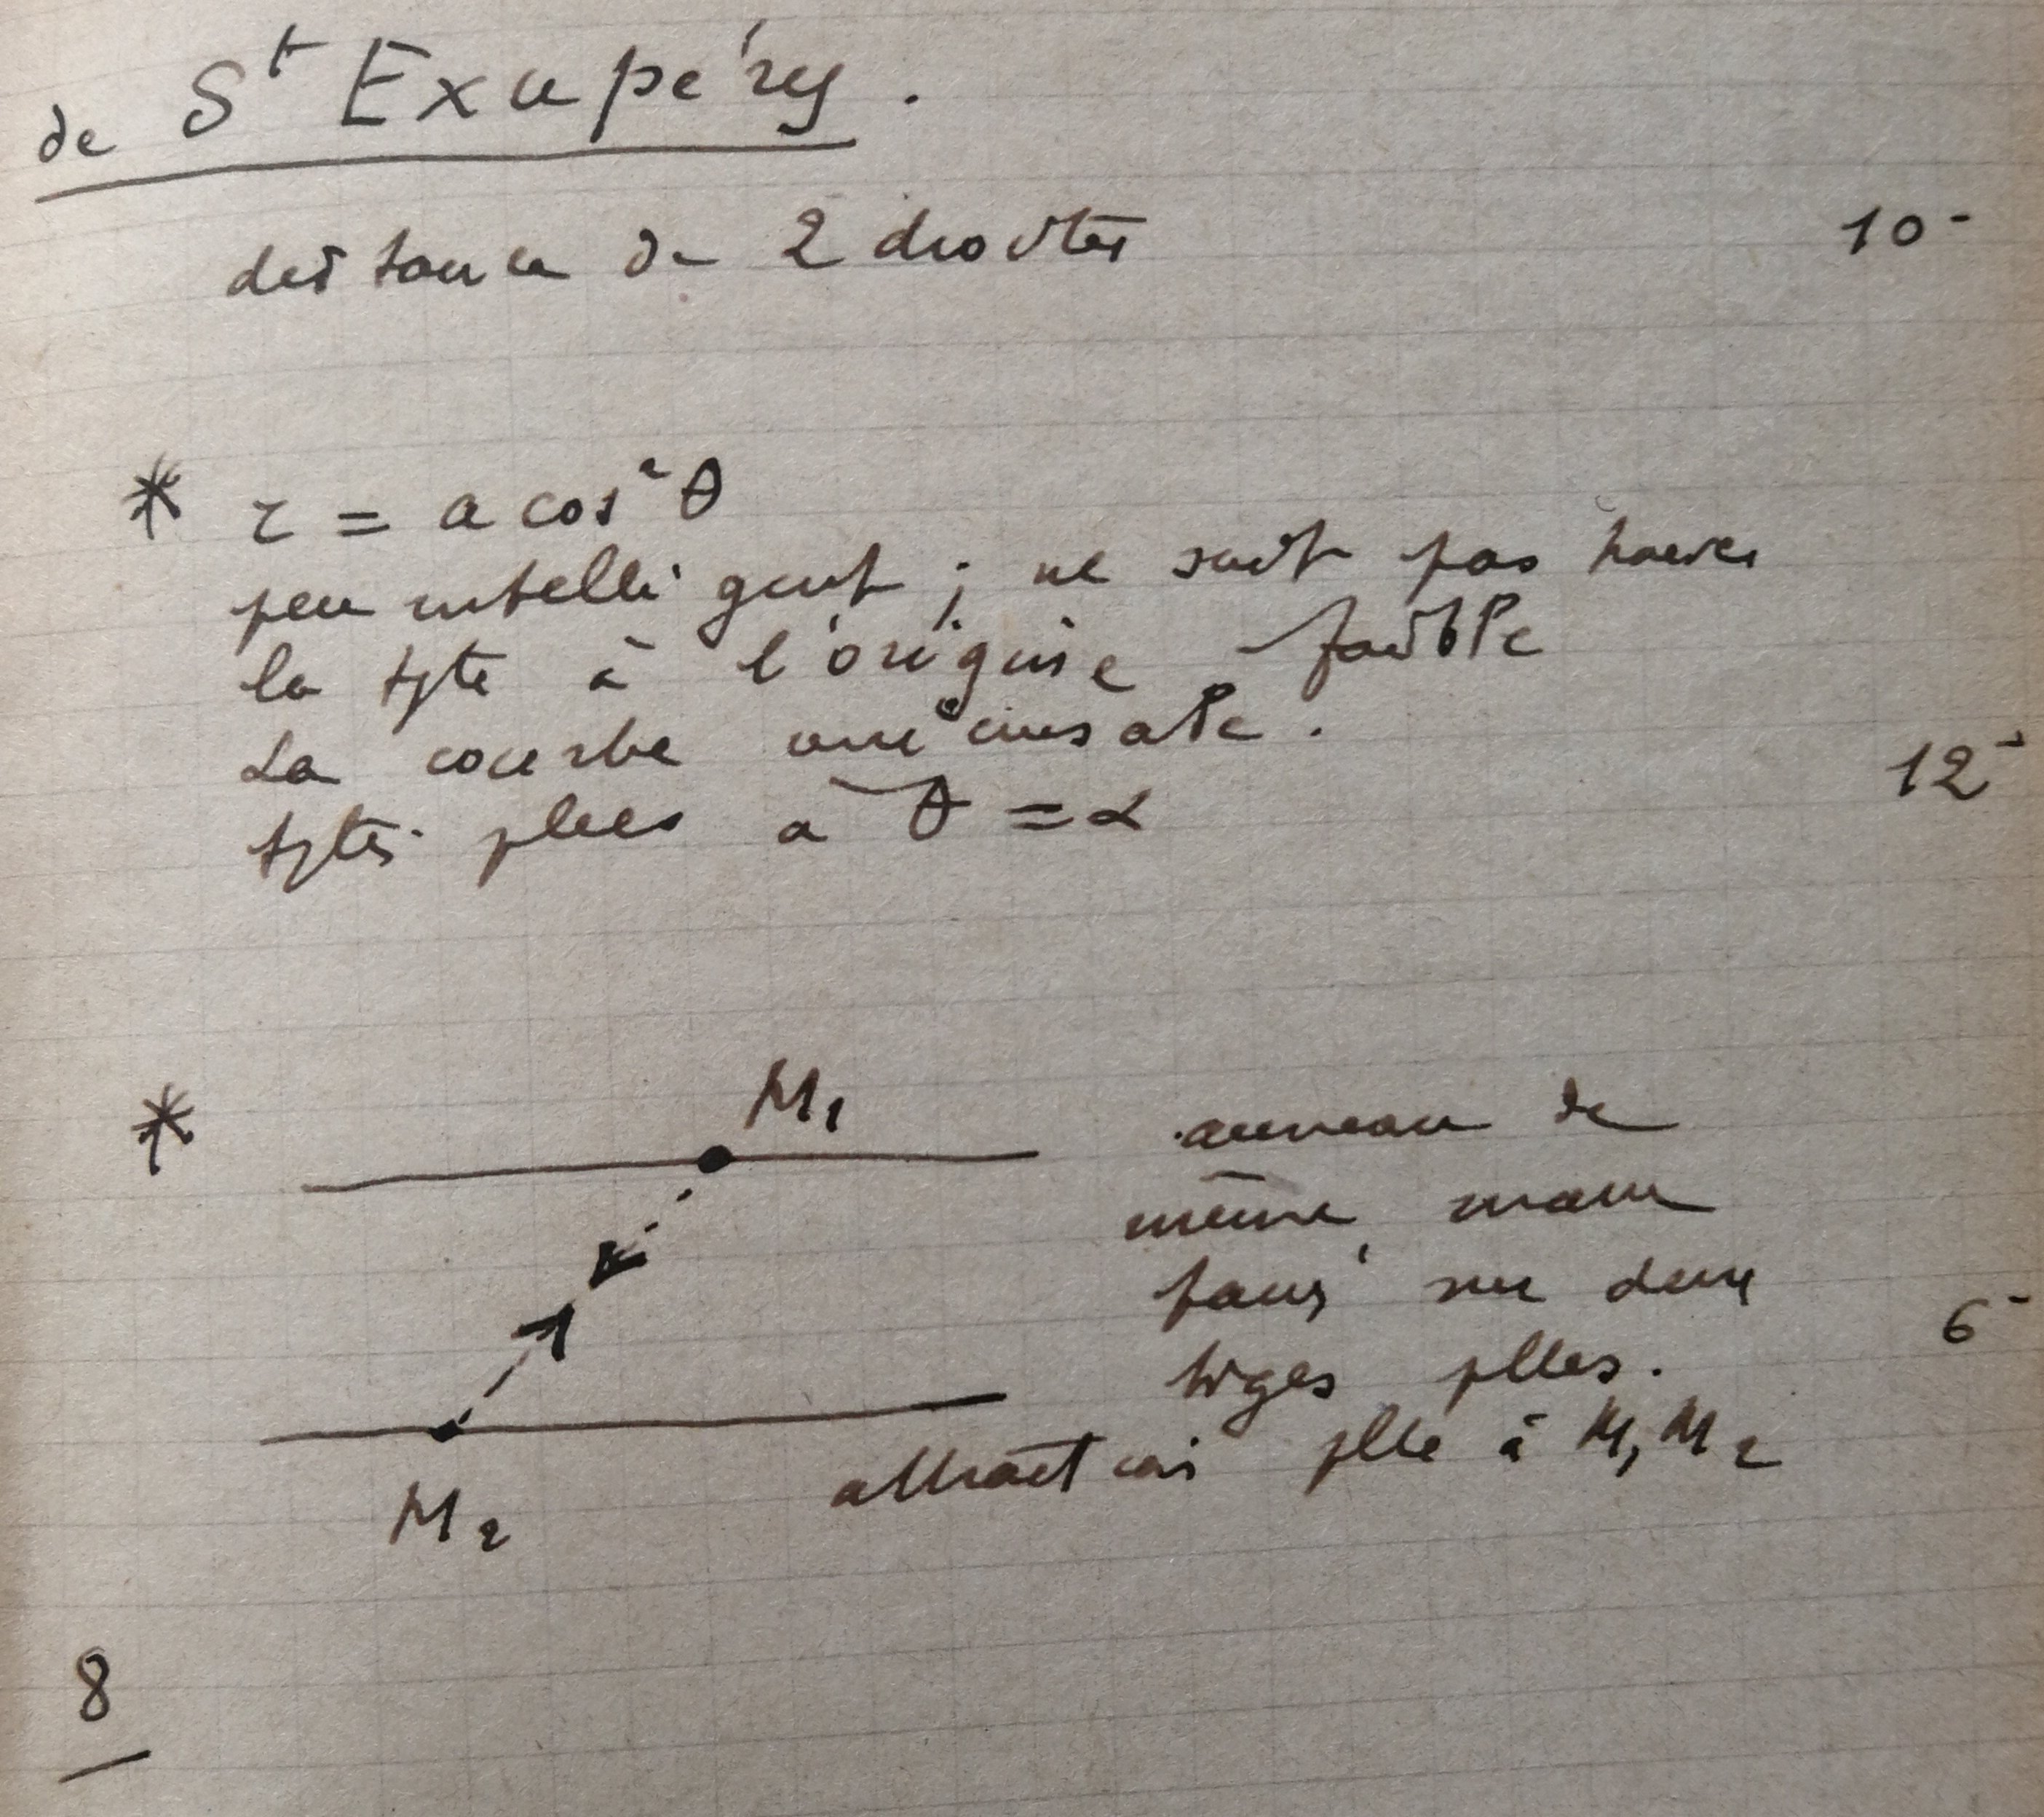 de St Exupéry.
distance de 2 droites 10-
* r = a cos²θ
peu intelligent ; ne sait pas trouver
la tgte à l'origine - faible
La courbe unicursale.
tgtes plles à θ = α 12-
* M1
anneau de
même masse
sur deux 6-
tiges plles.
attraction plle à M1 M2
M2
8